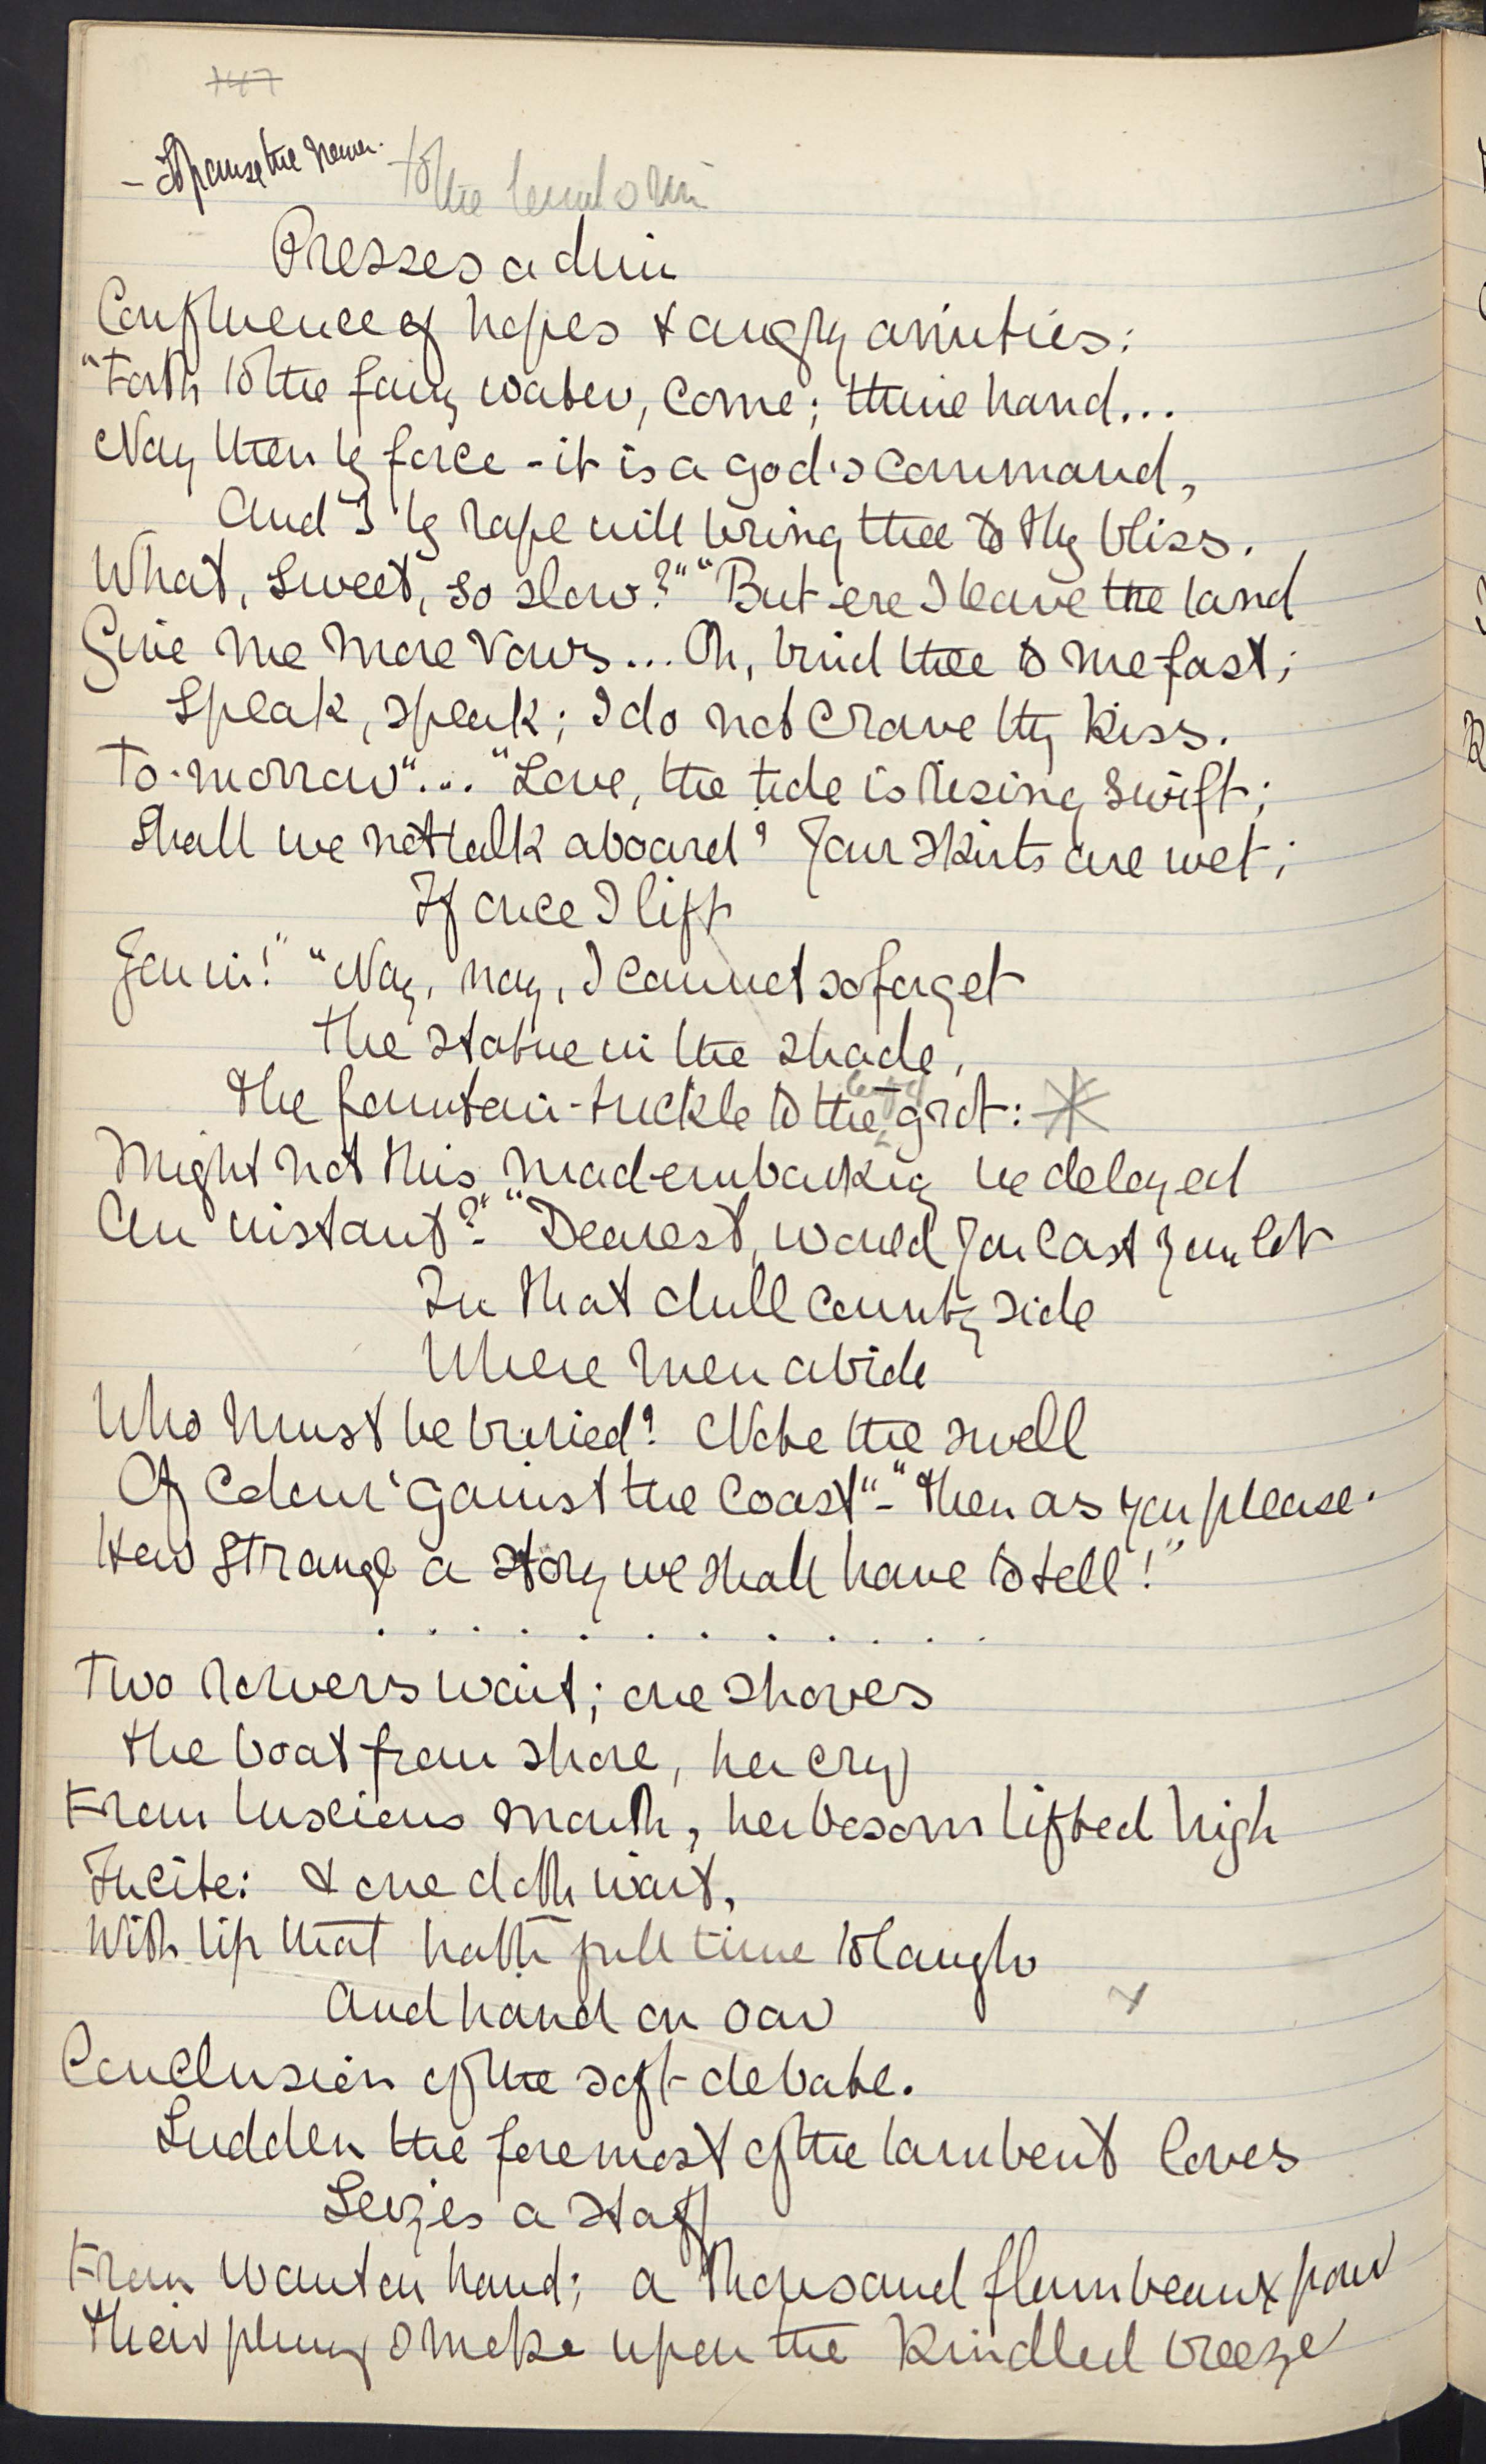 147
to the
Presses a dim
Confluence of hopes & angry amities:
"Forth to the fairy water, come; thine hand...
Nay then by force - it is a god's command,
And I by rape will bring thee to thy bliss.
What, sweet, so slow?" "But ere I leave the land
Give me more vows... Oh, bind thee to me fast;
Speak, speak; I do not crave thy kiss.
To-morrow"... "Love, the tide is rising swift;
Shall we not talk aboard? Your skirts are wet;
If once I lift
You in!" "Nay, nay, I cannot so forget
The statue in the shade,
The fountain-trickle to the grot:
Might not this mad embarking be delayed
An instant?" - "Dearest, would you cast your lot
In that dull country side
Where men abide
Who must be buried? Note the swell
Of colour 'gainst the coast" - "Then as you please.
How strange a story we shall have to tell!"
. . . . . . . . . . .
Two rowers wait; one shoves
The boat from shore, her cry
From luscious mouth, her bosom lifted high
Incite: & one doth wait,
With lip that hath full time to laugh
And hand on oar
Conclusion of the soft debate.
Sudden the foremost of the lambent loves
Seizes a staff
From wanton hand; a thousand flambeaux pour
Their plumy smoke upon the kindled breeze